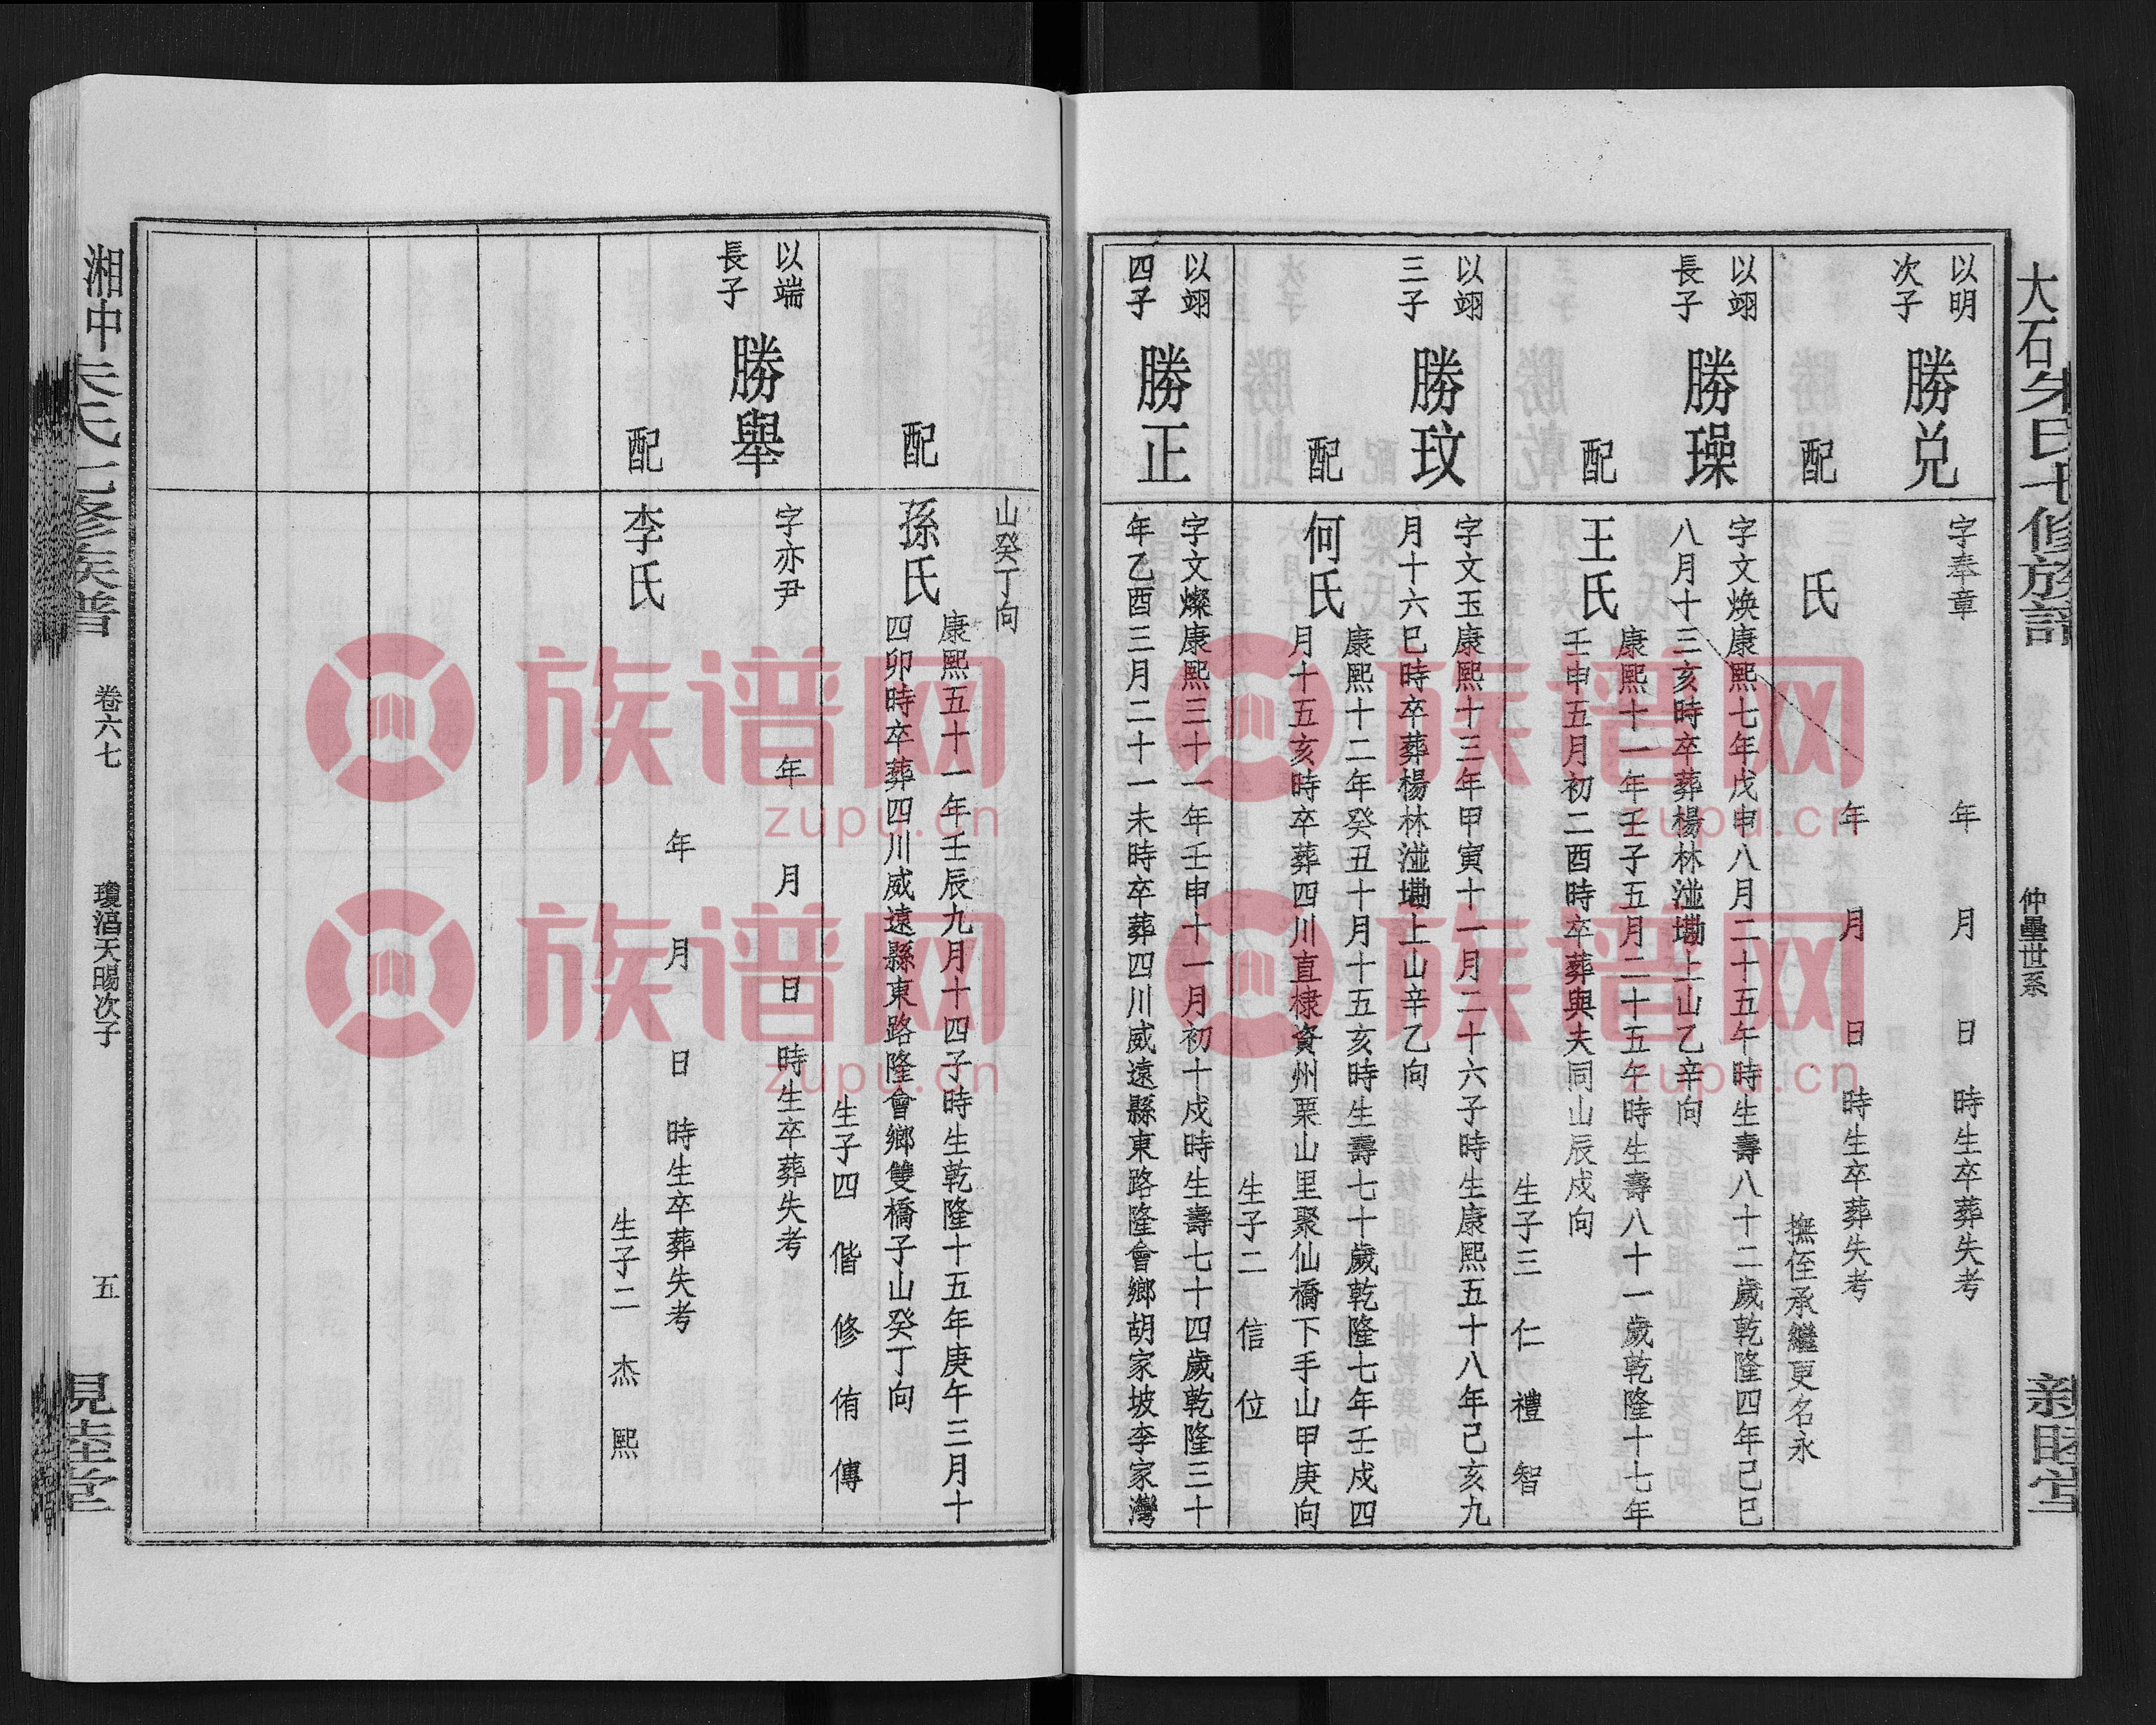 大石朱氏七修族譜
仲壘世系
親睦堂
以明
次子
勝兑
字奉章　年　月　日　時生卒葬失考
配
氏　年　月　日　時生卒葬失考
撫侄承繼更名永
以翊
長子
勝璪
字文煥康熙七年戊申八月二十五午時生壽八十二歲乾隆四年己巳
八月十三亥時卒葬楊林湴墈上山乙辛向
配
王氏
康熙十一年壬子五月二十五午時生壽八十一歲乾隆十七年
壬申五月初二酉時卒葬與夫同山辰戌向
生子三　仁　禮　智
以翊
三子
勝玟
字文玉康熙十三年甲寅十一月二十六子時生康熙五十八年己亥九
月十六巳時卒葬楊林湴墈上山辛乙向
配
何氏
康熙十二年癸丑十月十五亥時生壽七十歲乾隆七年壬戌四
月十五亥時卒葬四川直棣資州栗山里聚仙橋下手山甲庚向
生子二　信　位
以翊
四子
勝正
字文燦康熙三十一年壬申十一月初十戌時生壽七十四歲乾隆三十
年乙酉三月二十一未時卒葬四川威遠縣東路隆會鄉胡家坡李家灣
山癸丁向
配
孫氏
康熙五十一年壬辰九月十四子時生乾隆十五年庚午三月十
四卯時卒葬四川威遠縣東路隆會鄉雙橋子山癸丁向
生子四　偕　修　侑　傳
以端
長子
勝舉
字亦尹　年　月　日　時生卒葬失考
配
李氏　年　月　日　時生卒葬失考
生子二　杰　熙
湘中朱氏七修族譜
卷六七
瓊㴞天暘次子
五
親睦堂
族谱网
zupu.cn
族谱网
zupu.cn
族谱网
zupu.cn
族谱网
zupu.cn